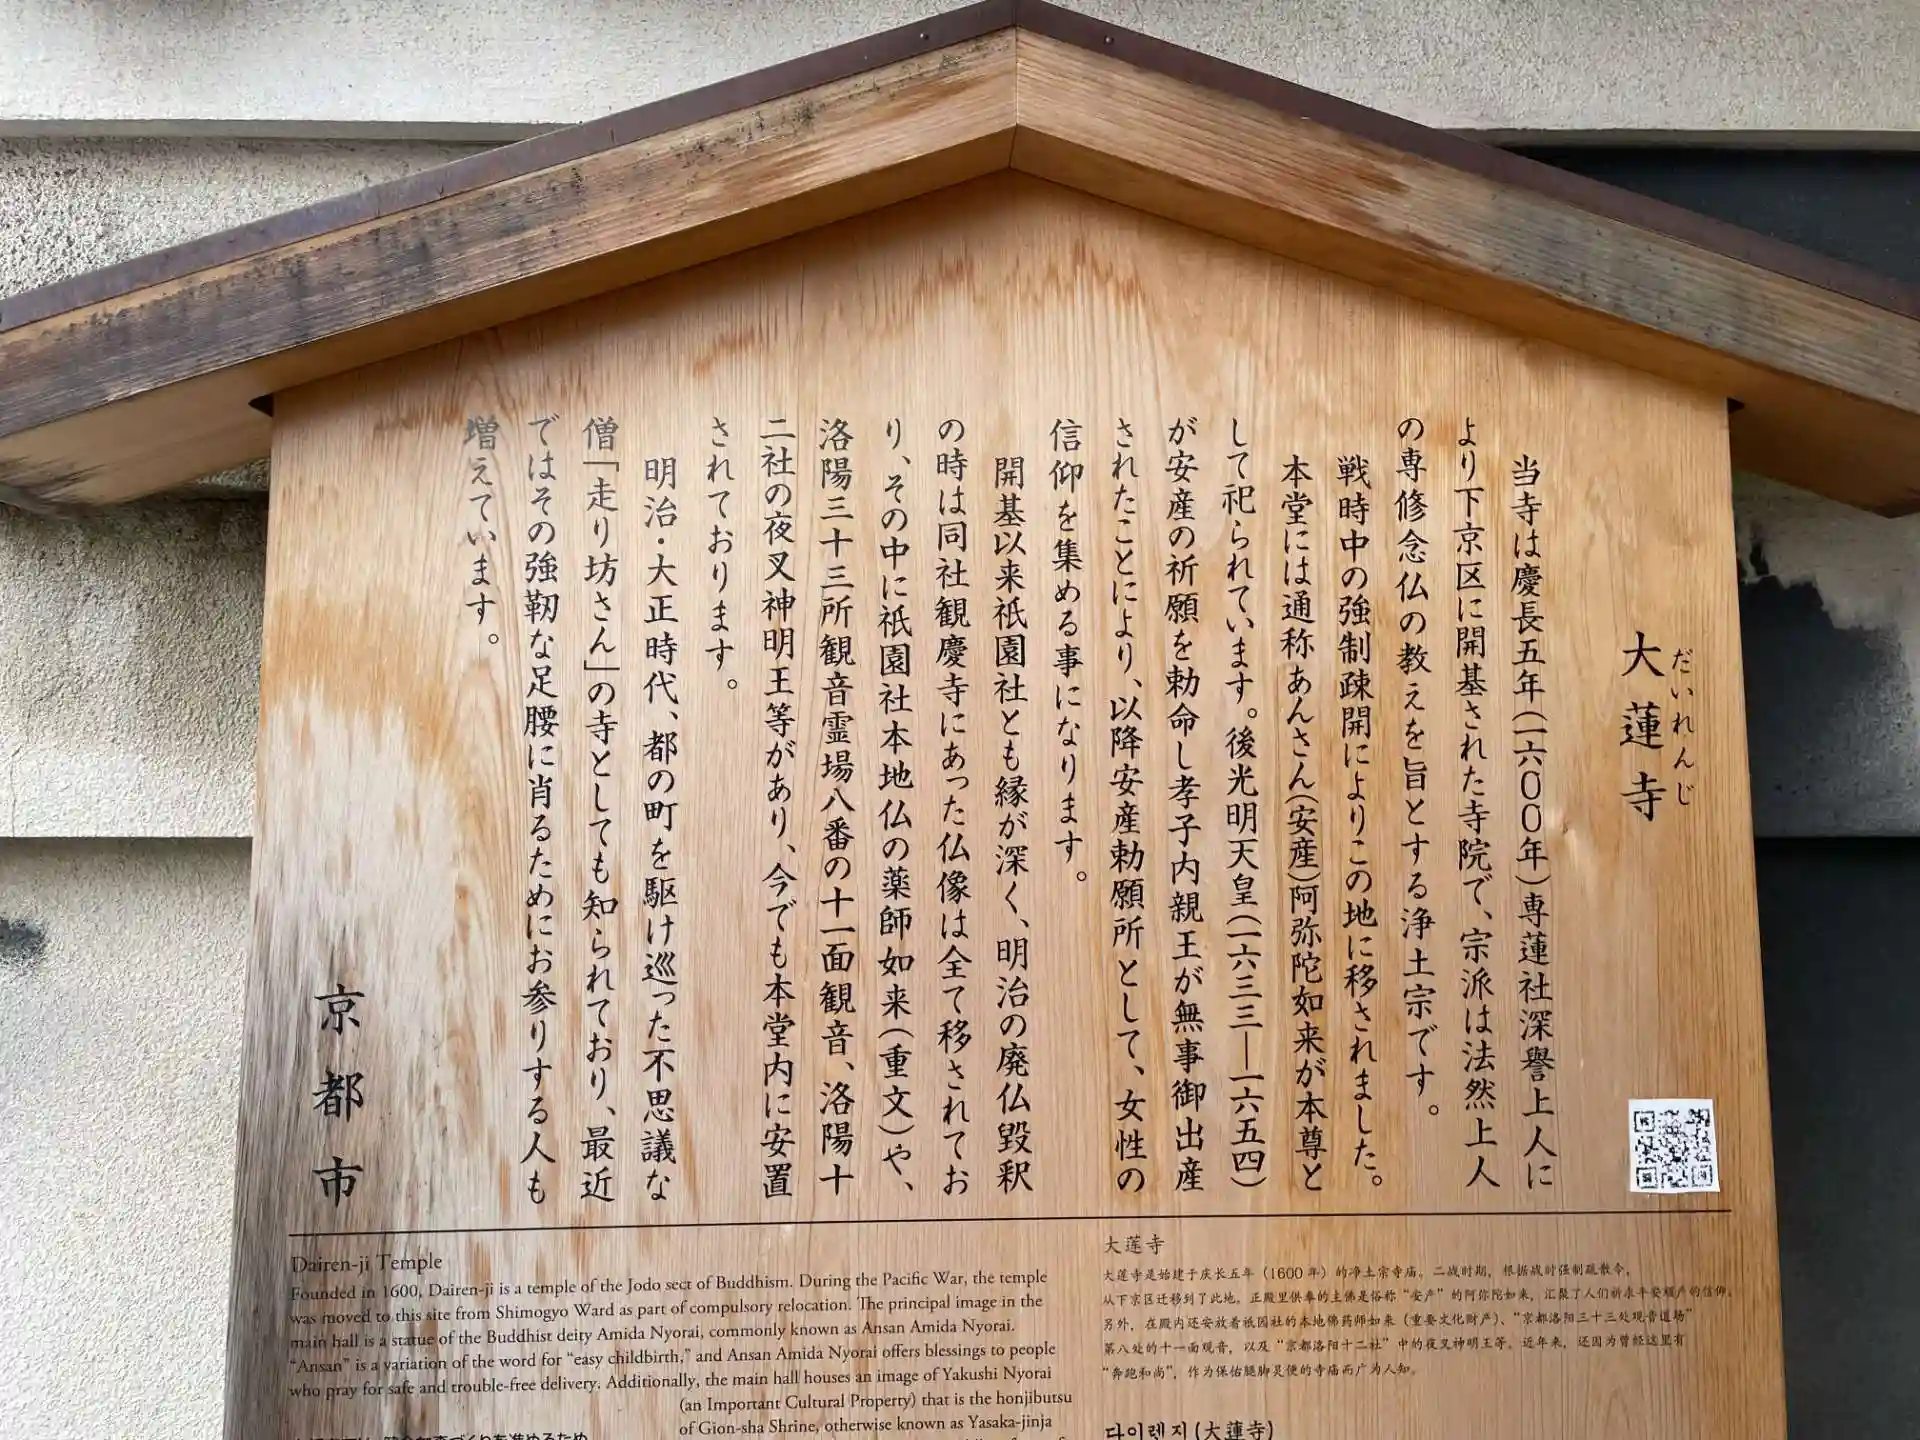 大蓮寺
だいれんじ
当寺は慶長五年(一六〇〇年)専蓮社深誉上人に
より下京区に開基された寺院で、宗派は法然上人
の専修念仏の教えを旨とする浄土宗です。
戦時中の強制疎開によりこの地に移されました。
本堂には通称あんさん(安産)阿弥陀如来が本尊と
して祀られています。後光明天皇(一六三三―一六五四)
が安産の祈願を勅命し孝子内親王が無事御出産
されたことにより、以降安産勅願所として、女性の
信仰を集める事になります。
開基以来祇園社とも縁が深く、明治の廃仏毀釈
の時は同社観慶寺にあった仏像は全て移されてお
り、その中に祇園社本地仏の薬師如来(重文)や、
洛陽三十三所観音霊場八番の十一面観音、洛陽十
二社の夜叉神明王等があり、今でも本堂内に安置
されております。
明治・大正時代、都の町を駆け巡った不思議な
僧「走り坊さん」の寺としても知られており、最近
ではその強靭な足腰に肖るためにお参りする人も
増えています。
京都市
Dairen-ji Temple
Founded in 1600, Dairen-ji is a temple of the Jodo sect of Buddhism. During the Pacific War, the temple
was moved to this site from Shimogyo Ward as part of compulsory relocation. The principal image in the
main hall is a statue of the Buddhist deity Amida Nyorai, commonly known as Ansan Amida Nyorai.
“Ansan” is a variation of the word for “easy childbirth,” and Ansan Amida Nyorai offers blessings to people
who pray for safe and trouble-free delivery. Additionally, the main hall houses an image of Yakushi Nyorai
(an Important Cultural Property) that is the honjibutsu
of Gion-sha Shrine, otherwise known as Yasaka-jinja
大莲寺
大莲寺是始建于庆长五年（1600年）的净土宗寺庙。二战时期，根据战时强制疏散令，
从下京区迁移到了此地。正殿里供奉的主佛是俗称“安产”的阿弥陀如来，汇聚了人们祈求平安顺产的信仰。
另外，在殿内还安放着祇园社的本地佛药师如来（重要文化财产）、“京都洛阳三十三处观音道场”
第八处的十一面观音，以及“京都洛阳十二社”中的夜叉神明王等。近年来，还因为曾经这里有
“奔跑和尚”，作为保佑腿脚灵便的寺庙而广为人知。
다이렌지(大蓮寺)